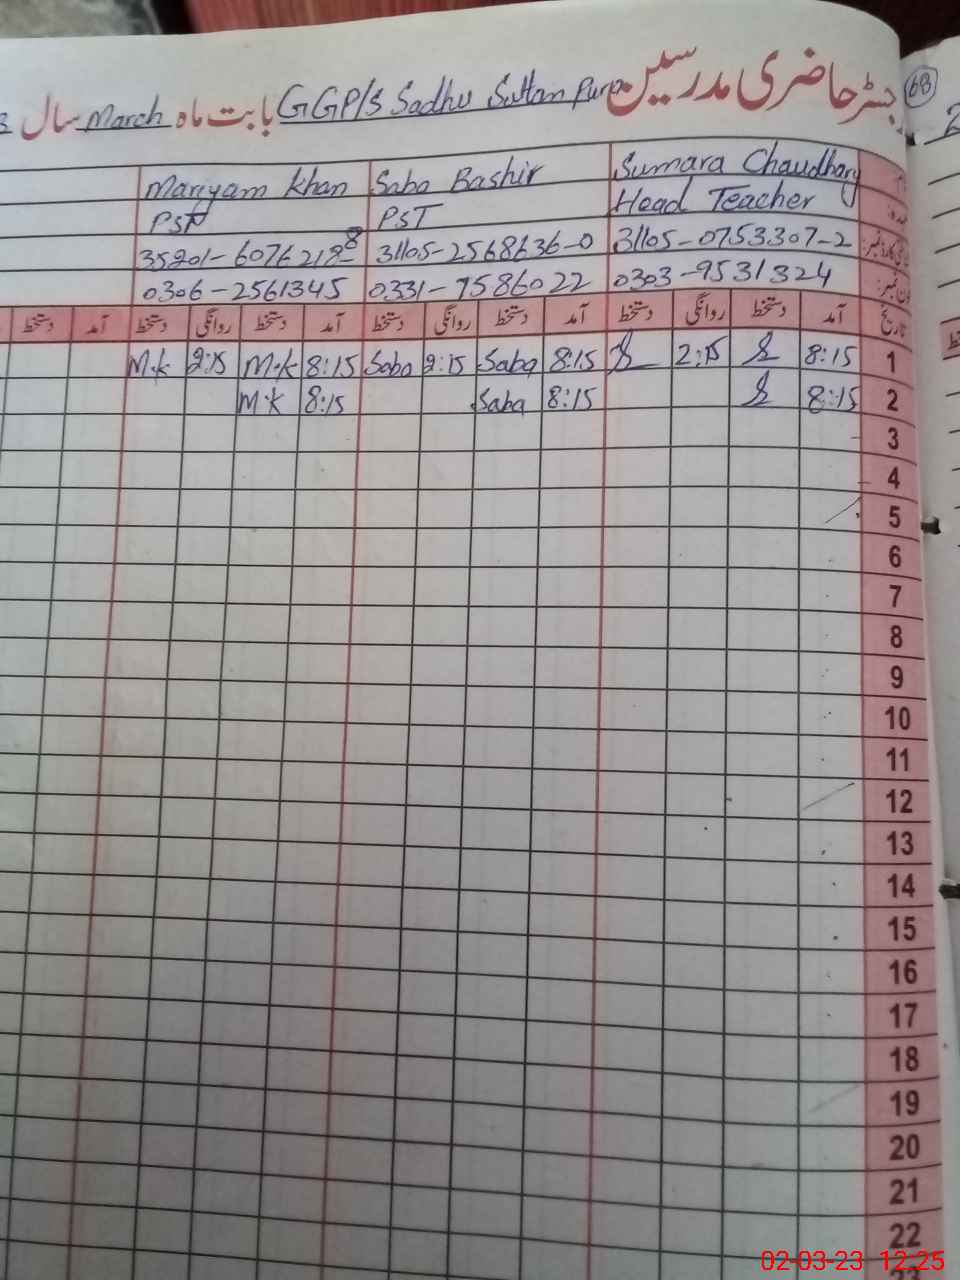 68
رجسٹر حاضری مدرسین GGP/S Sadhu Sultan Pura بابت ماہ March سال
Sumara Chaudhary Saba Bashir Mariyam Khan
عہدہ: Head Teacher PST PST
شناختی کارڈ نمبر: 31105-0753307-2 31105-2568636-0
فون نمبر: 0303-9531324 0331-7586022 0306-2561345
تاریخ آمد دستخط روانگی دستخط آمد دستخط روانگی دستخط آمد دستخط روانگی دستخط آمد دستخط
1 8:15 2:15 8:15 Saba 2:15 Saba 8:15 M.K 2:15 M.K
2 8:15 8:15 Saba 8:15 M.K
3
4
5
6
7
8
9
10
11
12
13
14
15
16
17
18
19
20
21
22
02-03-23 12:25